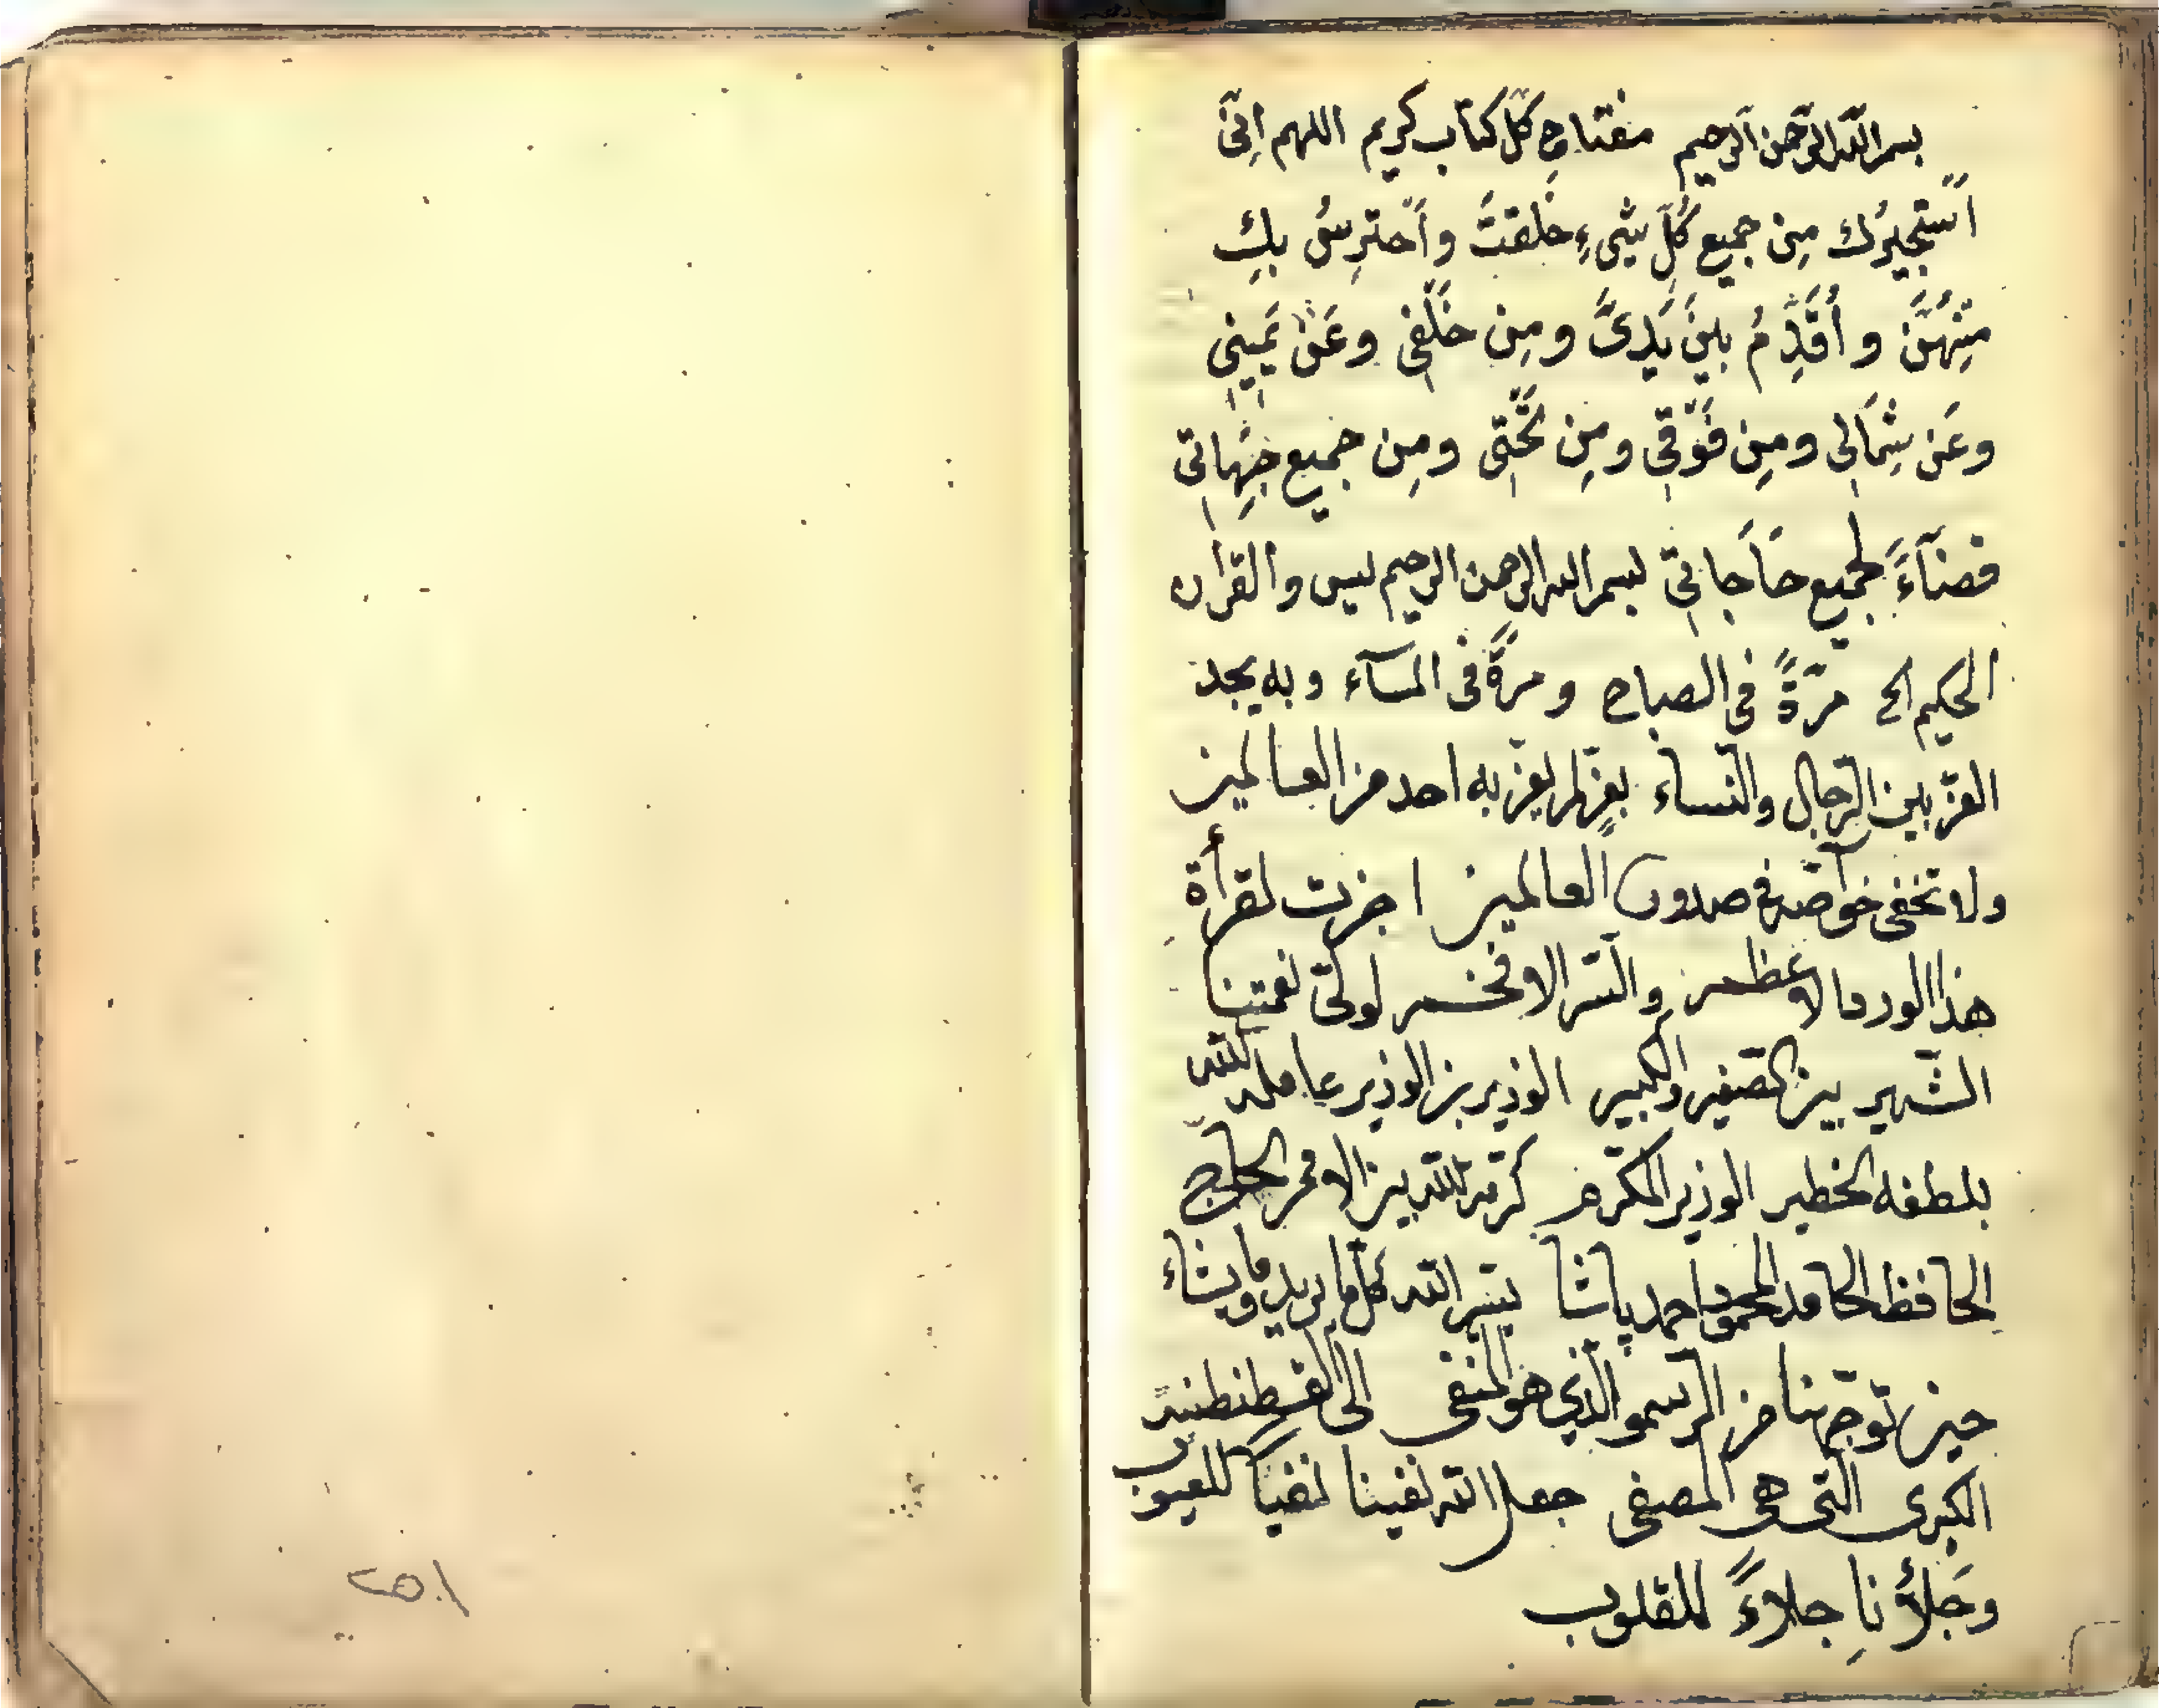 بسم الله الرّحمن الرّحيم مفتاح كلّ كتاب كريم اللهم اِنّى
اَستَجيرُك مِن جميع كُلِّ شَيءٍ خَلقتَ واَحترِسُ بِكِ
مِنهُنَّ و أُقَدِّمُ بينَ يَدىَّ ومِن خَلفِى وعَن يَمينِى
وعَن شِمَالِى ومِن فَوقِى ومِن تَحتِى ومِن جميع جِهَاتِى
قضآءً لجميع حَاجَاتِى بسم الله الرحمن الرحيم يس والقرآن
الحكيم الخ مرّةً فى الصباح و مرّةً فى المسآء و به يجد
العزّ بين الرّجال والنّساء بعزٍّ لم يعزّ به احد من العالمين
ولا تخفى خوآصّه فى صدور العالمين اجزت لقرأة
هذا الورد الاعظم والسّر الافخم لولىّ نعمتنا
الشّهير بين الصّغير والكبير الوزير بن الوزير عامله الله
بلطفه الخطير الوزير المكرّم كرّمه الله بين الامم الحاجّ
الحافظ الحامد المحمود احمد پاشا يسّر الله كلّ ما يريد وما يشاء
حين توجّهنا من الرسمو الّذى هو المنفى الى القسطنطنيّه
الكبرى الّتى هى المصفى جعل الله نفينا نفيًا للعيوب
وجَلاؤُنا جلاءً للقلوب